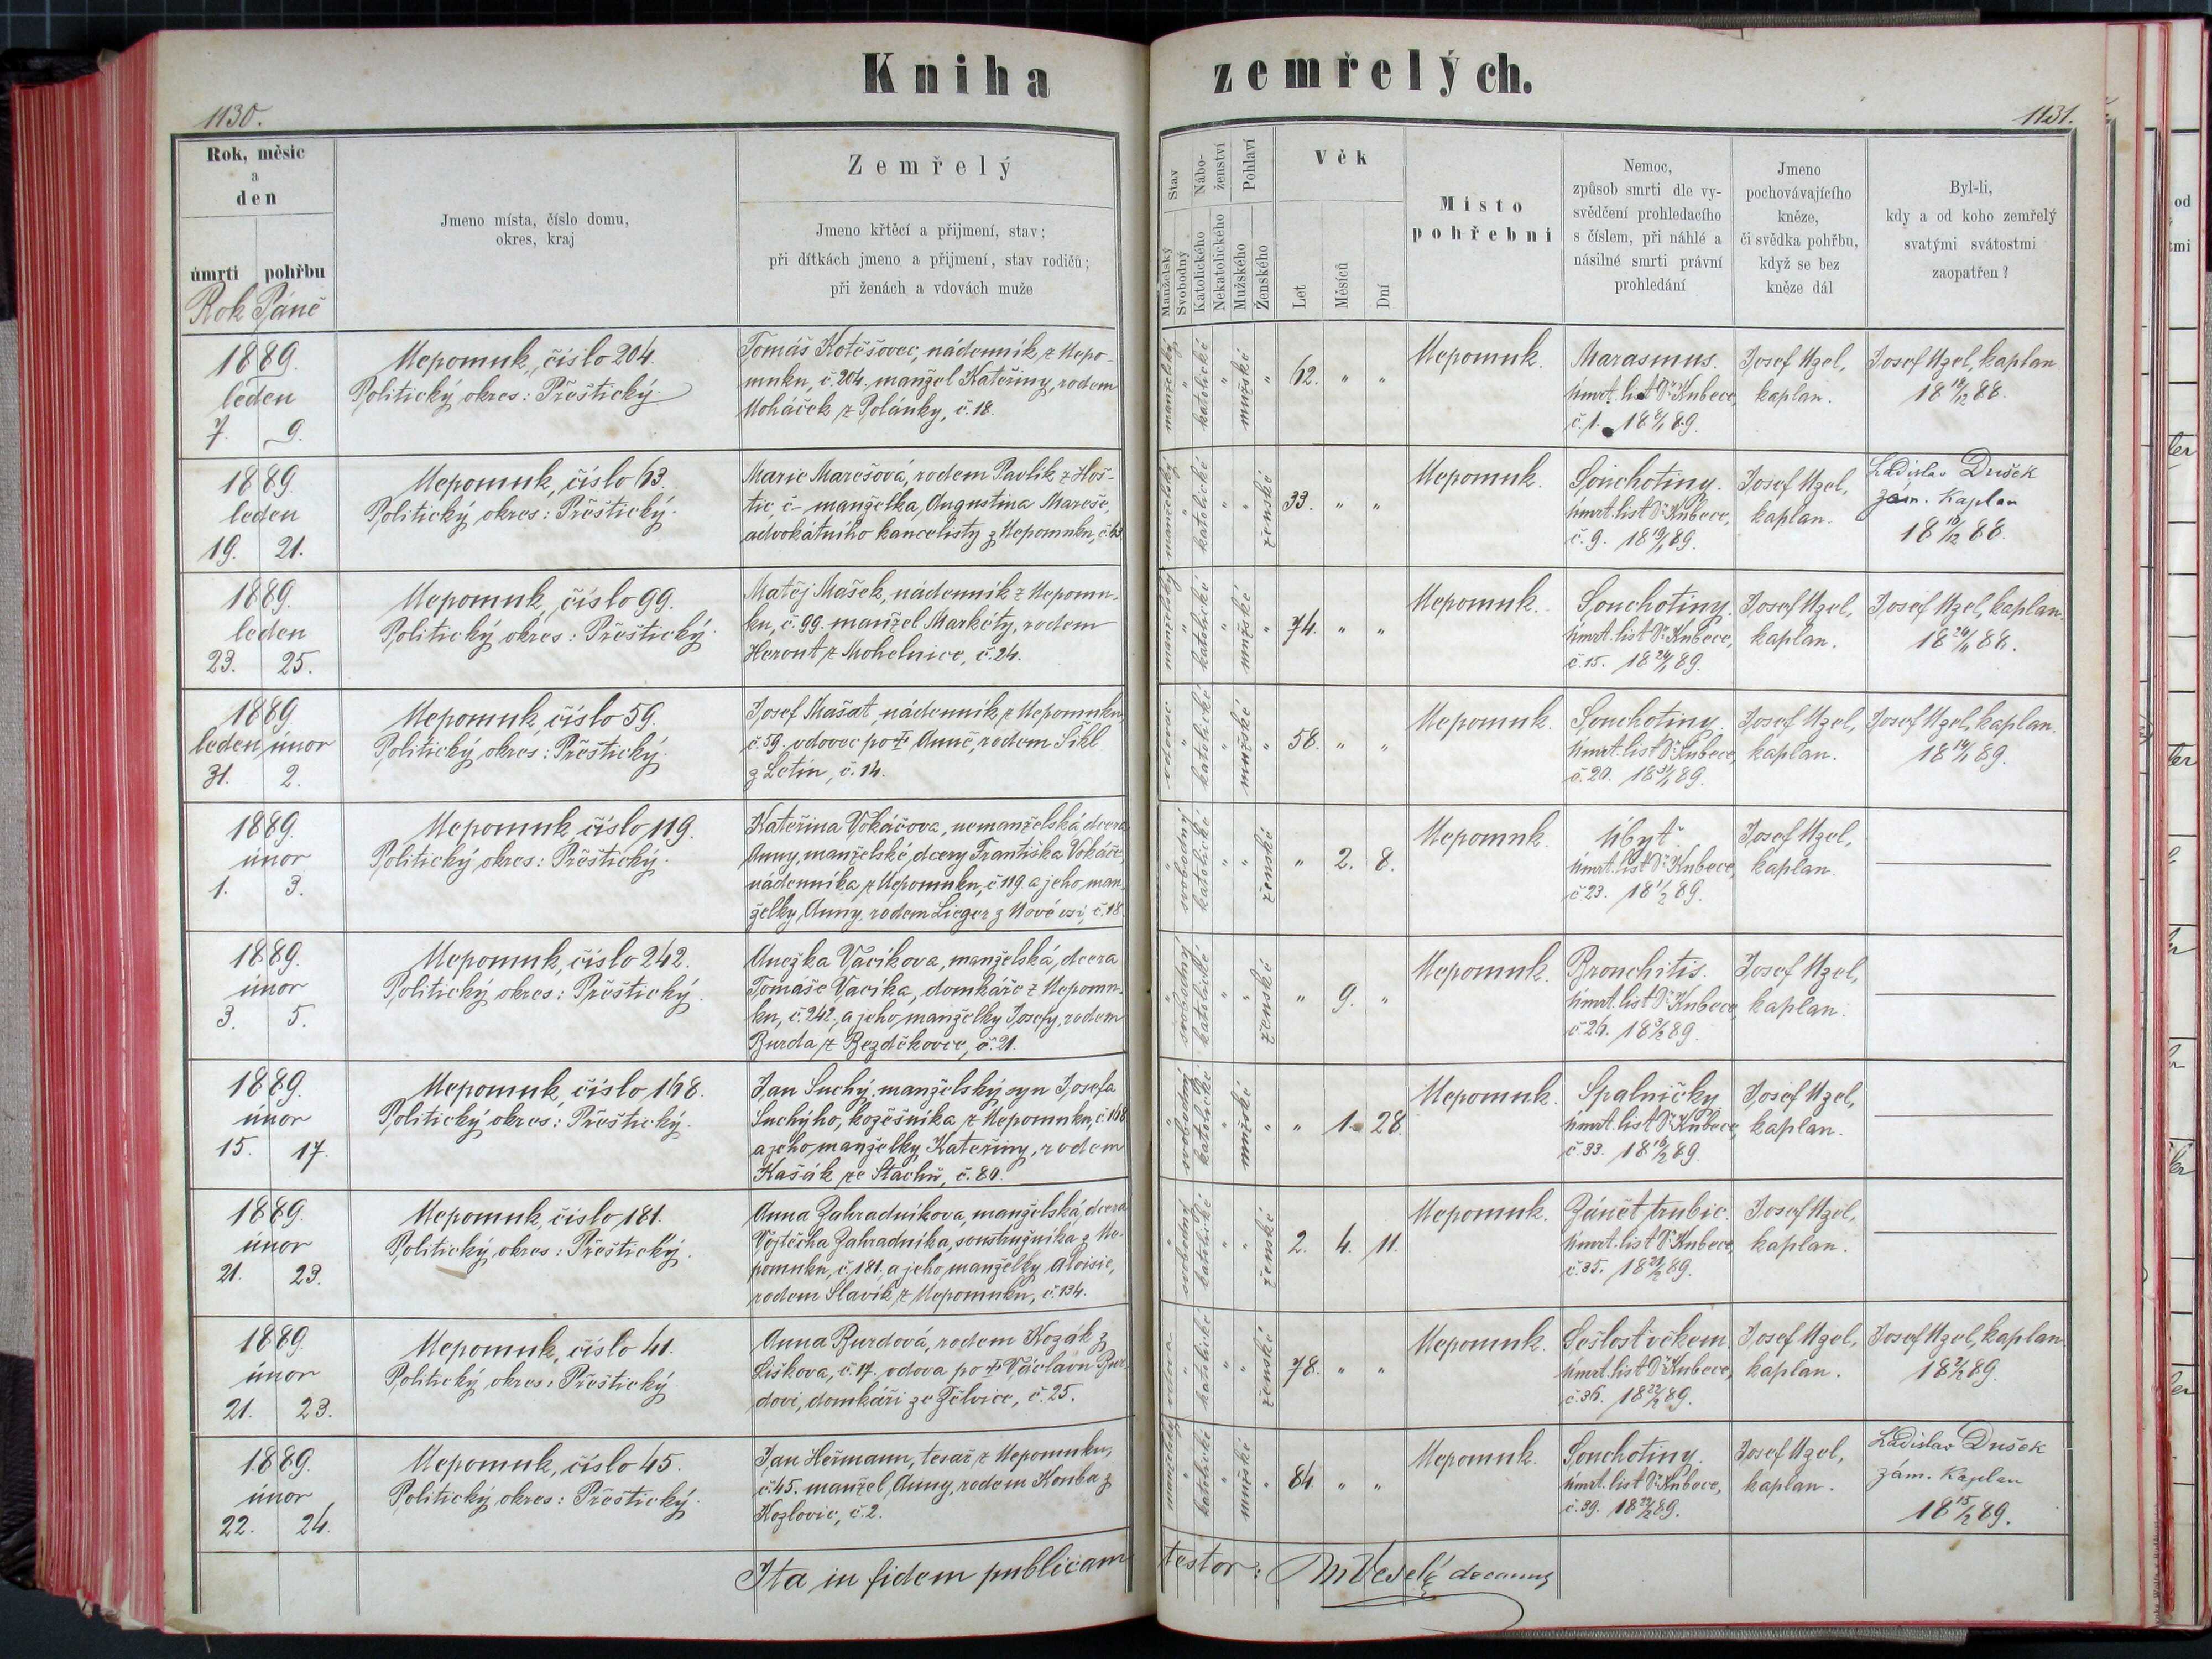 Kniha zemřelých.
1130.
1131.
Rok, měsíc
a
den
úmrtí pohřbu
Rok Páně
Jmeno místa, číslo domu,
okres, kraj
Zemřelý
Jmeno křtěcí a přijmení, stav;
při dítkách jmeno a přijmení, stav rodičů;
při ženách a vdovách muže
Stav
Manželský
Svobodný
Nábo-
ženství
Katolického
Nekatolického
Pohlaví
Mužského
Ženského
Věk
Let
Měsíců
Dní
Místo
pohřební
Nemoc,
způsob smrti dle vy-
svědčení prohledacího
s číslem, při náhlé a
násilné smrti právní
prohledání
Jmeno
pochovávajícího
kněze,
či svědka pohřbu,
když se bez
kněze dál
Byl-li,
kdy a od koho zemřelý
svatými svátostmi
zaopatřen?
1889.
leden
7. 9.
Nepomuk, číslo 204.
Politický okres: Přeštický.
Tomáš Kotěšovec, nádenník z Nepo-
muku, č. 204. manžel Kateřiny, rodem
Noháček z Polánky, č. 18.
manželský " katolické " mužské "
62. " "
Nepomuk.
Marasmus.
úmrt. list Dr. Kubece,
č. 1. 18 8/1 89.
Josef Uzel,
kaplan.
Josef Uzel, kaplan
18 19/12 88.
1889.
leden
19. 21.
Nepomuk, číslo 63.
Politický okres: Přeštický.
Marie Marešová, rodem Pavlík z Hoš-
tic, č - manželka Augustina Mareše,
advokátního kancelisty z Nepomuku, č. 63
manželský " katolické " " ženské
33. " "
Nepomuk.
Souchotiny.
úmrt. list Dr. Kubece,
č. 9. 18 19/1 89.
Josef Uzel,
kaplan.
Ladislav Dušek
zam. Kaplan
18 16/12 88.
1889.
leden
23. 25.
Nepomuk, číslo 99.
Politický okres: Přeštický.
Matěj Mašek, nádenník z Nepomu-
ku, č. 99. manžel Markéty, rodem
Heront z Mohelnice, č. 24.
manželský " katolické " mužské "
74. " "
Nepomuk.
Souchotiny.
úmrt. list Dr. Kubece,
č. 15. 18 24/1 89.
Josef Uzel,
kaplan.
Josef Uzel, kaplan.
18 26/11 88.
1889.
leden únor
31. 2.
Nepomuk, číslo 59.
Politický okres: Přeštický.
Josef Mašat, nádenník z Nepomuku,
č. 59. vdovec po † Anně, rodem Šikl
z Letin, č. 14.
vdovec " katolické " mužské "
58. " "
Nepomuk.
Souchotiny.
úmrt. list Dr. Kubece,
č. 20. 18 31/1 89.
Josef Uzel,
kaplan.
Josef Uzel, kaplan.
18 19/1 89.
1889.
únor
1. 3.
Nepomuk, číslo 119.
Politický okres: Přeštický.
Kateřina Vokáčova, nemanželská dcera
Anny, manželské dcery Františka Vokáče,
nádenníka z Nepomuku, č. 119. a jeho man-
želky, Anny, rodem Lieger z Nové vsi, č. 18.
" svobodný katolické " " ženské
" 2. 8.
Nepomuk.
Úbyť.
úmrt. list Dr. Kubece,
č. 23. 18 1/2 89.
Josef Uzel,
kaplan.
1889.
únor
3. 5.
Nepomuk, číslo 242.
Politický okres: Přeštický.
Anežka Vacíkova, manželská dcera
Tomáše Vacíka, domkáře z Nepomu-
ku, č. 242. a jeho manželky Josefy, rodem
Burda z Bezděkovce, č. 21.
" svobodný katolické " " ženské
" 9. "
Nepomuk.
Bronchitis.
úmrt. list Dr. Kubece,
č. 26. 18 3/2 89.
Josef Uzel,
kaplan.
1889.
únor
15. 17.
Nepomuk, číslo 168.
Politický okres: Přeštický.
Jan Suchý, manželský syn Josefa
Suchýho, kožešníka z Nepomuku, č. 168
a jeho manželky Kateřiny, rodem
Kašák ze Stachů, č. 80.
" svobodný katolické " mužské "
" 1. 28.
Nepomuk.
Spalničky
úmrt. list Dr. Kubece,
č. 33. 18 16/2 89.
Josef Uzel,
kaplan.
1889.
únor
21. 23.
Nepomuk, číslo 181.
Politický okres: Přeštický.
Anna Zahradníkova, manželská dcera
Vojtěcha Zahradníka, soustružníka z Ne-
pomuku, č. 181. a jeho manželky Aloisie,
rodem Slavík z Nepomuku, č. 134.
" svobodný katolické " " ženské
2. 4. 11.
Nepomuk.
Zánět trubic.
úmrt. list Dr. Kubece,
č. 35. 18 21/2 89.
Josef Uzel,
kaplan.
1889.
únor
21. 23.
Nepomuk, číslo 41.
Politický okres: Přeštický.
Anna Burdová, rodem Kozák z
Liškova, č. 17. vdova po † Václavu Bur-
dovi, domkáři ze Želvice, č. 25.
vdova " katolické " " ženské
78. " "
Nepomuk.
Sešlost věkem.
úmrt. list Dr. Kubece,
č. 36. 18 22/2 89.
Josef Uzel,
kaplan.
Josef Uzel, kaplan.
18 2/2 89.
1889.
únor
22. 24.
Nepomuk, číslo 45.
Politický okres: Přeštický.
Jan Heřmann, tesař z Nepomuku,
č. 45. manžel Anny, rodem Kouba z
Kozlovic, č. 2.
manželský " katolické " mužské "
84. " "
Nepomuk.
Souchotiny.
úmrt. list Dr. Kubece,
č. 39. 18 22/2 89.
Josef Uzel,
kaplan.
Ladislav Dušek
zám. Kaplan
18 15/2 89.
Ita in fidem publicam testor: M Veselý decanus